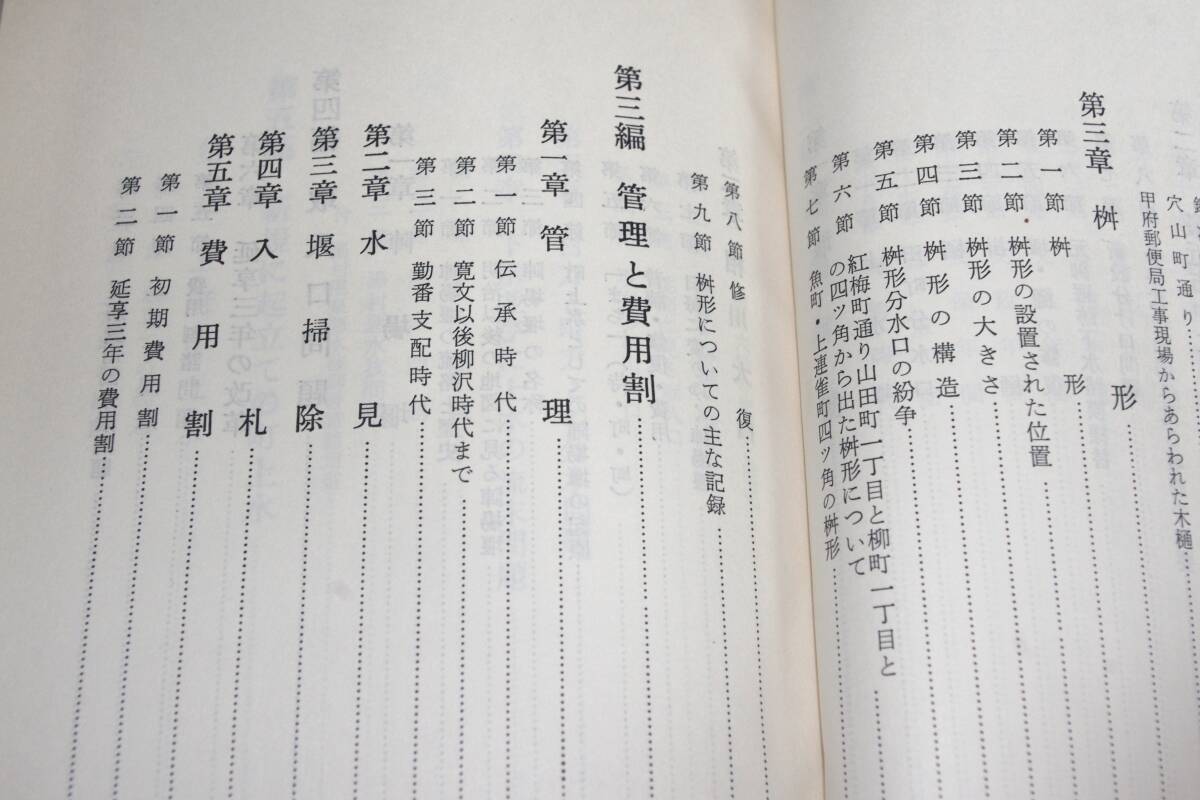 穴山町通り
甲府郵便局工事現場からあらわれた木樋
第三章 桝形
第一節 桝形
第二節 桝形の設置された位置
第三節 桝形の大きさ
第四節 桝形の構造
第五節 桝形分水口の紛争
第六節 紅梅町通り山田町一丁目と柳町一丁目と
の四ツ角から出た桝形について
第七節 魚町・上連雀町四ツ角の桝形
第八節 修復
第九節 桝形についての主な記録
第三編 管理と費用割
第一章 管理
第一節 伝承時代
第二節 寛文以後柳沢時代まで
第三節 勤番支配時代
第二章 水見
第三章 堰口掃除
第四章 入札
第五章 費用割
第一節 初期費用割
第二節 延享三年の費用割